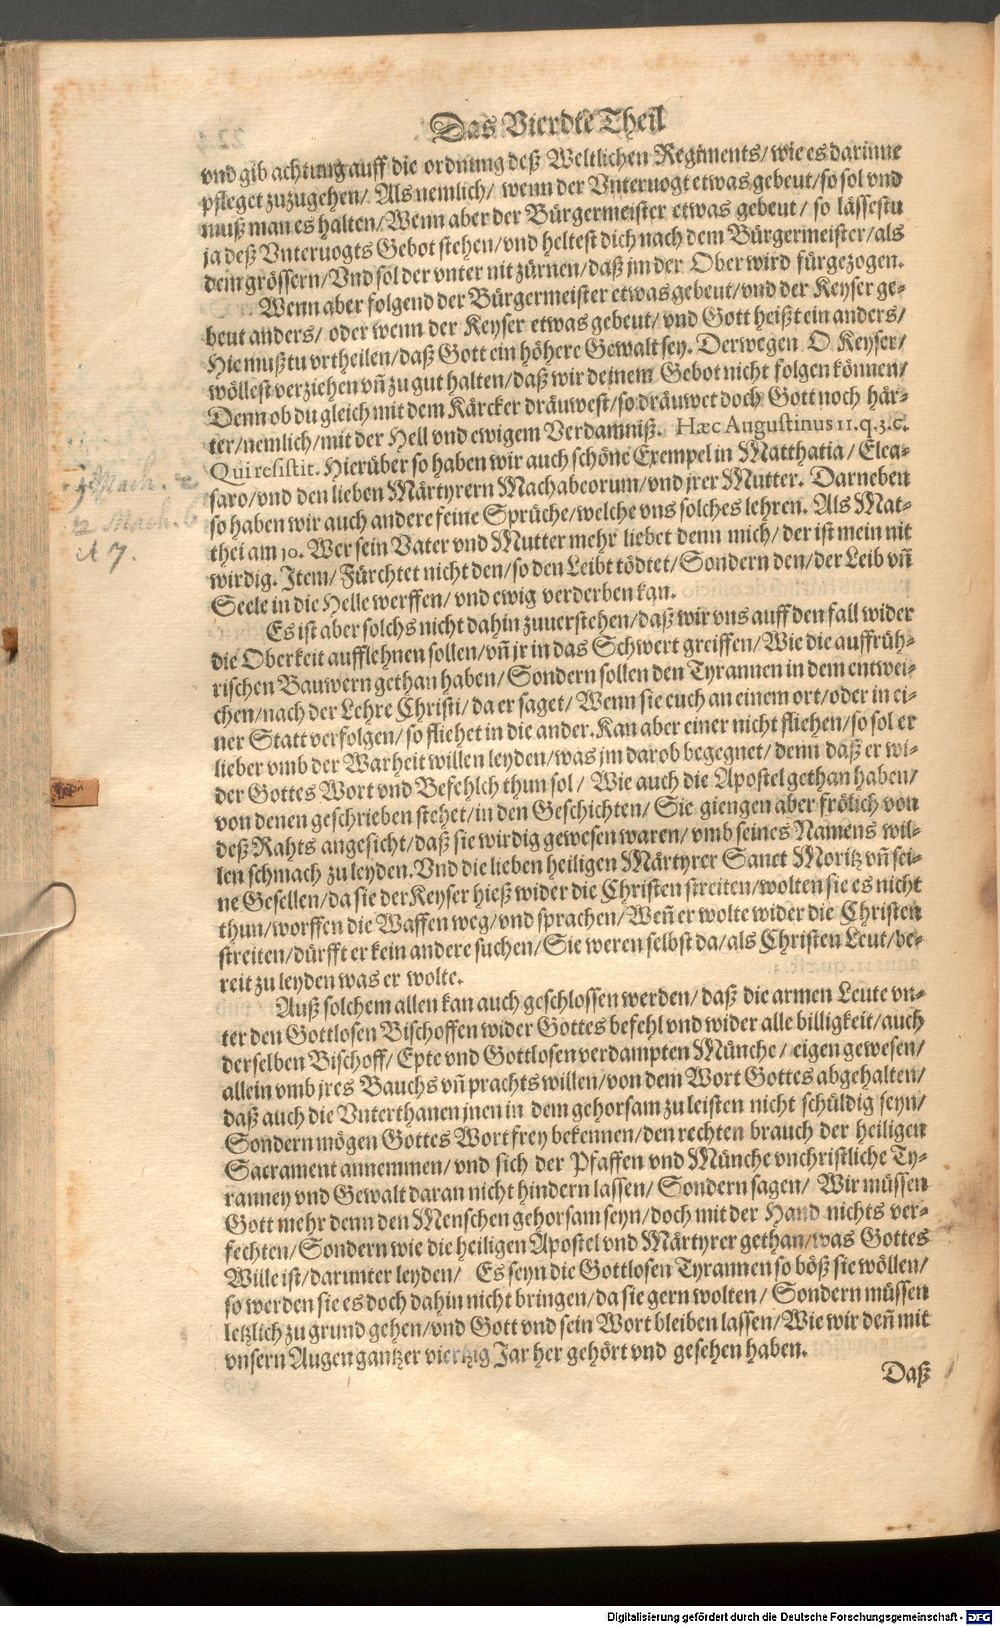 Das Vierdte Theil
vnd gib achtung auff die ordnung deß Weltlichen Regiments/ wie es darinne
pfleget zuzugehen/ Als nemlich/ wenn der Vnteruogt etwas gebeut/ so sol vnd
muß man es halten/ Wenn aber der Bürgermeister etwas gebeut/ so lässestu
ja deß Vnteruogts Gebot stehen/ vnd heltest dich nach dem Bürgermeister/ als
dem grössern/ Vnd sol der vnter nit zürnen/ daß jm der Ober wird fürgezogen.
Wenn aber folgend der Bürgermeister etwas gebeut/ vnd der Keyser ge-
beut anders/ oder wenn der Keyser etwas gebeut/ vnd Gott heißt ein anders/
Hie mußtu vrtheilen/ daß Gott ein höhere Gewalt sey. Derwegen O Keyser/
wöllest verziehen vñ zu gut halten/ daß wir deinem Gebot nicht folgen können/
Denn ob du gleich mit dem Kärcker dräuwest/ so dräuwet doch Gott noch här-
ter/ nemlich/ mit der Hell vnd ewigem Verdamniß. Hæc Augustinus 11. q. 3. c.
Qui resistit. Hierüber so haben wir auch schöne Exempel in Matthatia/ Elea-
saro/ vnd den lieben Märtyrern Machabeorum/ vnd jrer Mutter. Darneben
so haben wir auch andere feine Sprüche/ welche vns solches lehren. Als Mat-
thei am 10. Wer sein Vater vnd Mutter mehr liebet denn mich/ der ist mein nit
wirdig. Item/ Fürchtet nicht den/ so den Leibt tödtet/ Sondern den/ der Leib vñ
Seele in die Helle werffen/ vnd ewig verderben kan.
Es ist aber solchs nicht dahin zuuerstehen/ daß wir vns auff den fall wider
die Oberkeit aufflehnen sollen/ vñ jr in das Schwert greiffen/ Wie die auffrüh-
rischen Bauwern gethan haben/ Sondern sollen den Tyrannen in dem entwei-
chen/ nach der Lehre Christi/ da er saget/ Wenn sie euch an einem ort/ oder in ei-
ner Statt verfolgen/ so fliehet in die ander. Kan aber einer nicht fliehen/ so sol er
lieber vmb der Warheit willen leyden/ was jm darob begegnet/ denn daß er wi-
der Gottes Wort vnd Befehlch thun sol/ Wie auch die Apostel gethan haben/
von denen geschrieben stehet/ in den Geschichten/ Sie giengen aber frölich von
deß Rahts angesicht/ daß sie wirdig gewesen waren/ vmb seines Namens wil-
len schmach zu leyden. Vnd die lieben heiligen Märtyrer Sanct Moritz vñ sei-
ne Gesellen/ da sie der Keyser hieß wider die Christen streiten/ wolten sie es nicht
thun/ worffen die Waffen weg/ vnd sprachen/ Weñ er wolte wider die Christen
streiten/ dürfft er kein andere suchen/ Sie weren selbst da/ als Christen Leut/ be-
reit zu leyden was er wolte.
Auß solchem allen kan auch geschlossen werden/ daß die armen Leute vn-
ter den Gottlosen Bischoffen wider Gottes befehl vnd wider alle billigkeit/ auch
derselben Bischoff/ Epte vnd Gottlosen verdampten Münche/ eigen gewesen/
allein vmb jres Bauchs vñ prachts willen/ von dem Wort Gottes abgehalten/
daß auch die Vnterthanen jnen in dem gehorsam zu leisten nicht schüldig seyn/
Sondern mögen Gottes Wort frey bekennen/ den rechten brauch der heiligen
Sacrament annemmen/ vnd sich der Pfaffen vnd Münche vnchristliche Ty-
ranney vnd Gewalt daran nicht hindern lassen/ Sondern sagen/ Wir müssen
Gott mehr denn den Menschen gehorsam seyn/ doch mit der Hand nichts ver-
fechten/ Sondern wie die heiligen Apostel vnd Märtyrer gethan/ was Gottes
Wille ist/ darunter leyden/ Es seyn die Gottlosen Tyrannen so böß sie wöllen/
so werden sie es doch dahin nicht bringen/ da sie gern wolten/ Sondern müssen
letzlich zu grund gehen/ vnd Gott vnd sein Wort bleiben lassen/ Wie wir deñ mit
vnsern Augen gantzer viertzig Jar her gehört vnd gesehen haben.
Daß
Mach. 2
2 Mach. 6
et 7.
Digitalisierung gefördert durch die Deutsche Forschungsgemeinschaft - DFG